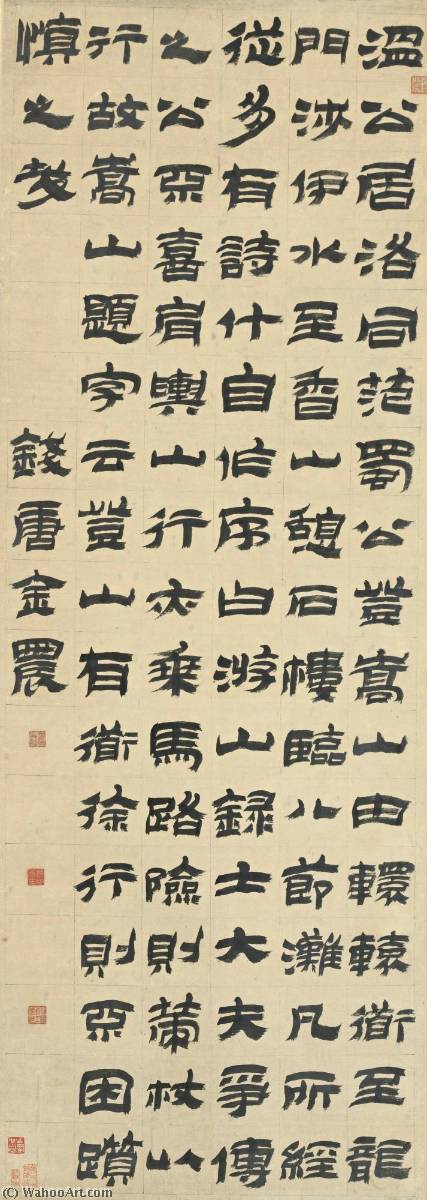 溫公居洛同范蜀公登嵩山由轘轅道至龍
門涉伊水至香山憩石樓臨八節灘凡所經
從多有詩什自作序曰游山録士大夫爭傳
之公不喜肩輿山行亦乘馬路險則策杖以
行故嵩山題字云登山有道徐行則不困躓
慎之哉
錢唐金農
© WahooArt.com